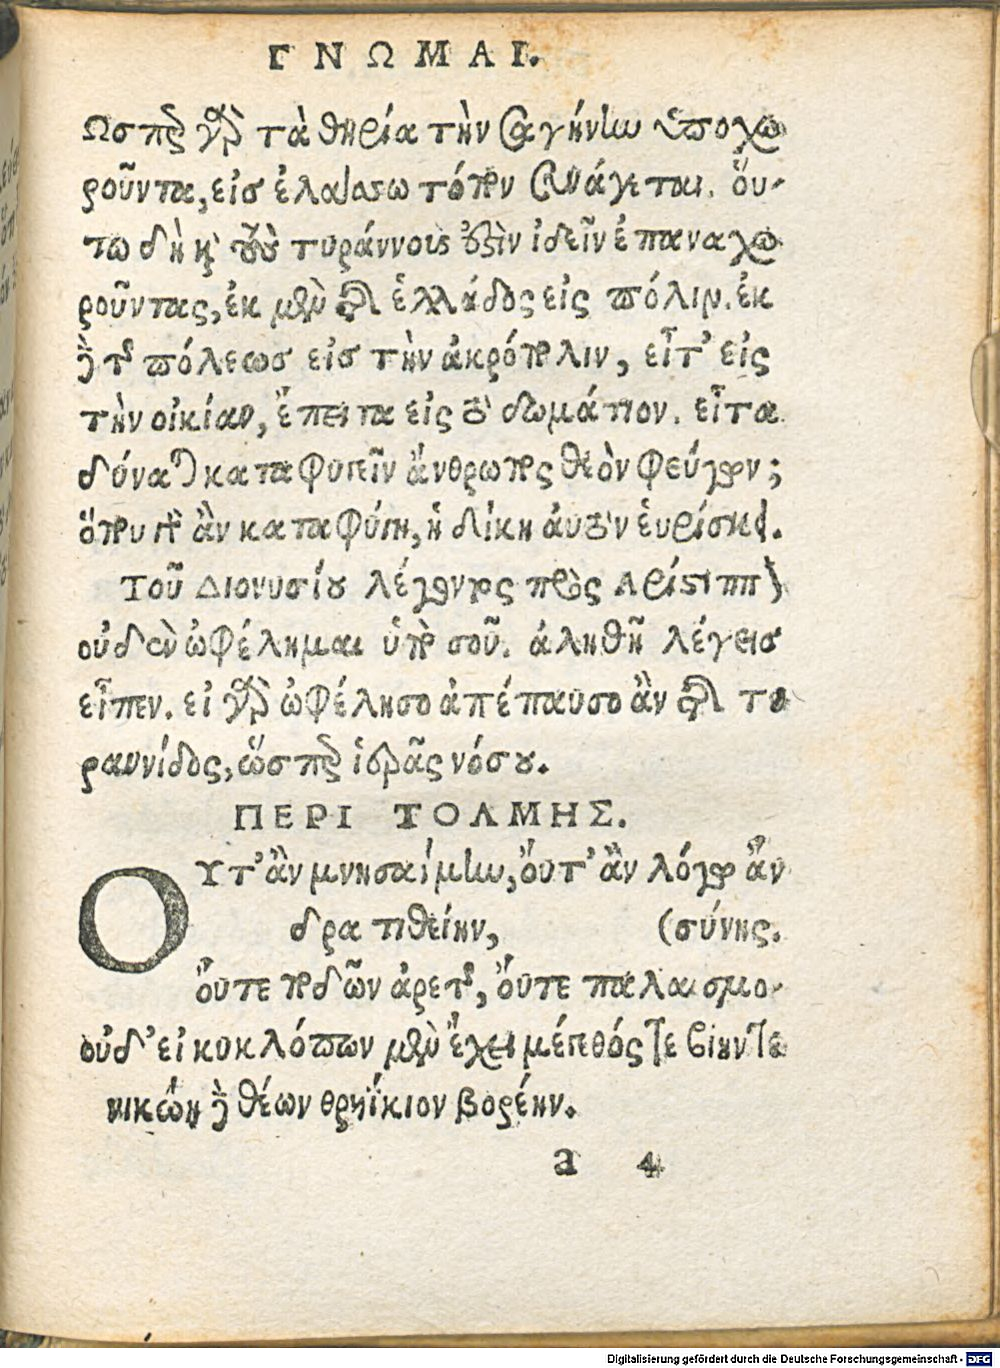 ΓΝΩΜΑΙ.
Ωσπερ γὰρ τὰ θηρία τὴν σαγήνην ὑποχω
ροῦντα, εἰσ ἐλαάσσω τόπον συνάγεται. ὅυ-
τω δὴ καὶ τοὺς τυράννους ἔξιν ἰδεῖν ἐπαναχω
ροῦντας, ἐκ μὲν τῆς ἑλλάδος εἰς πόλιν. ἐκ
δὲ τῆς πόλεωσ εἰσ τὴν ἀκρόπολιν, εἶτ' εἰς
τὴν οἰκίαν, ἔπειτα εἰς τὸ δωμάτιον. εἶτα
δύναται καταφυγεῖν ἄνθρωπος θεὸν φεύγων;
ὅπου γὰρ ἂν καταφύγη, ἡ δίκη ἀυτὸν ἑυρίσκει.
Τοῦ Διονυσίου λέγοντος πρὸς Αρίστιππον
οὐδὲν ὠφέλημαι ὑπὸ σοῦ. ἀληθῆ λέγεισ
εἶπεν. εἰ γὰρ ὠφέλησο ἀπέπαυσο ἂν τῆς τυ
ραννίδος, ὥσπερ ἱερᾶς νόσου.
ΠΕΡΙ ΤΟΛΜΗΣ.
ΟΥτ' ἂν μνησαίμην, ὄυτ' ἂν λόγω ἄν
δρα τιθείην, (σύνης.
ὄυτε ποδῶν ἀρετῆς, ὄυτε παλαισμο-
οὐδ' εἰ κυκλόπων μὲν ἔχει μέγεθός τε βίην τε
νικώη δὲ θέων θρηΐκιον βορέην.
a 4
Digitalisierung gefördert durch die Deutsche Forschungsgemeinschaft - DFG